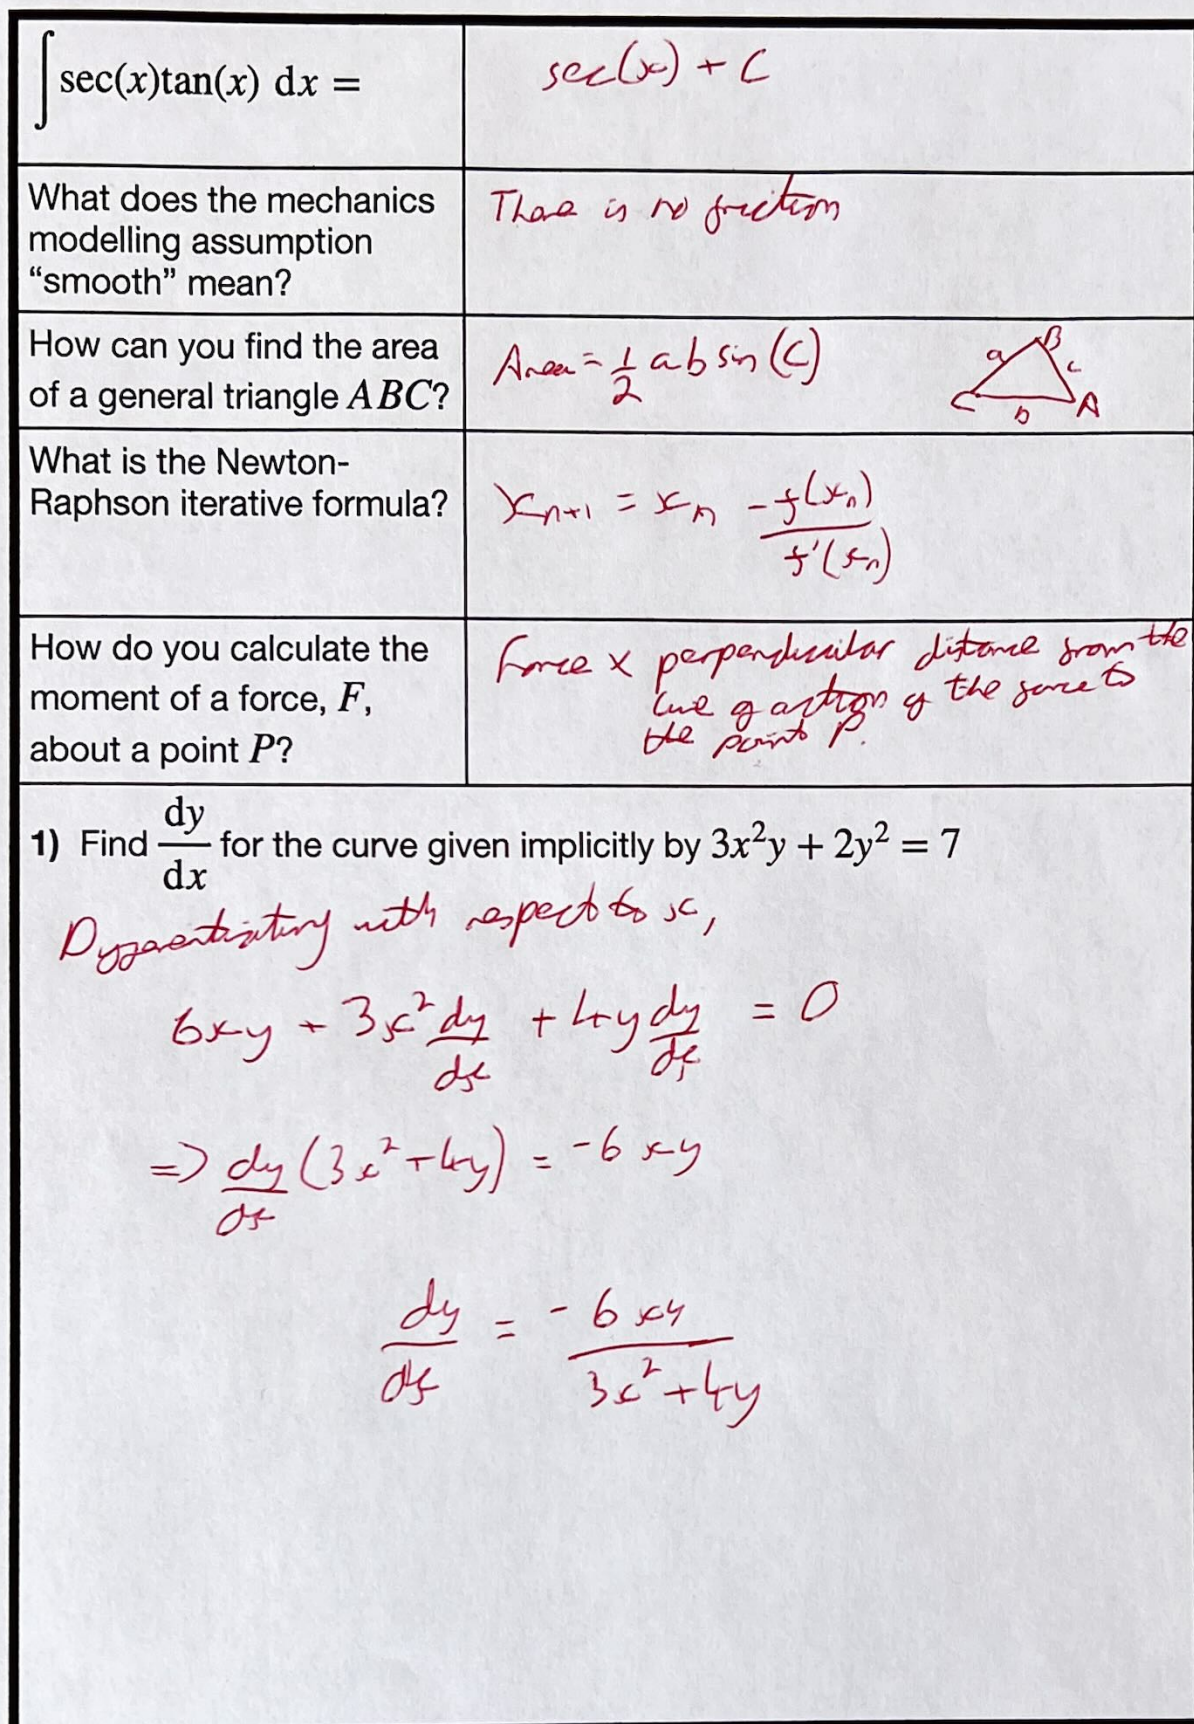 ∫sec(x)tan(x) dx =
sec(x) + C
What does the mechanics
modelling assumption
“smooth” mean?
There is no friction
How can you find the area
of a general triangle ABC?
Area = 1/2 ab sin(C)
B
a
c
C
A
b
What is the Newton-
Raphson iterative formula?
xₙ₊₁ = xₙ - f(xₙ)/f'(xₙ)
How do you calculate the
moment of a force, F,
about a point P?
Force × perpendicular distance from the
line of action of the force to
the point P.
1) Find dy/dx for the curve given implicitly by 3x²y + 2y² = 7
Differentiating with respect to x,
6xy + 3x² dy/dx + 4y dy/dx = 0
=> dy/dx (3x² + 4y) = -6xy
dy/dx = -6xy/(3x² + 4y)